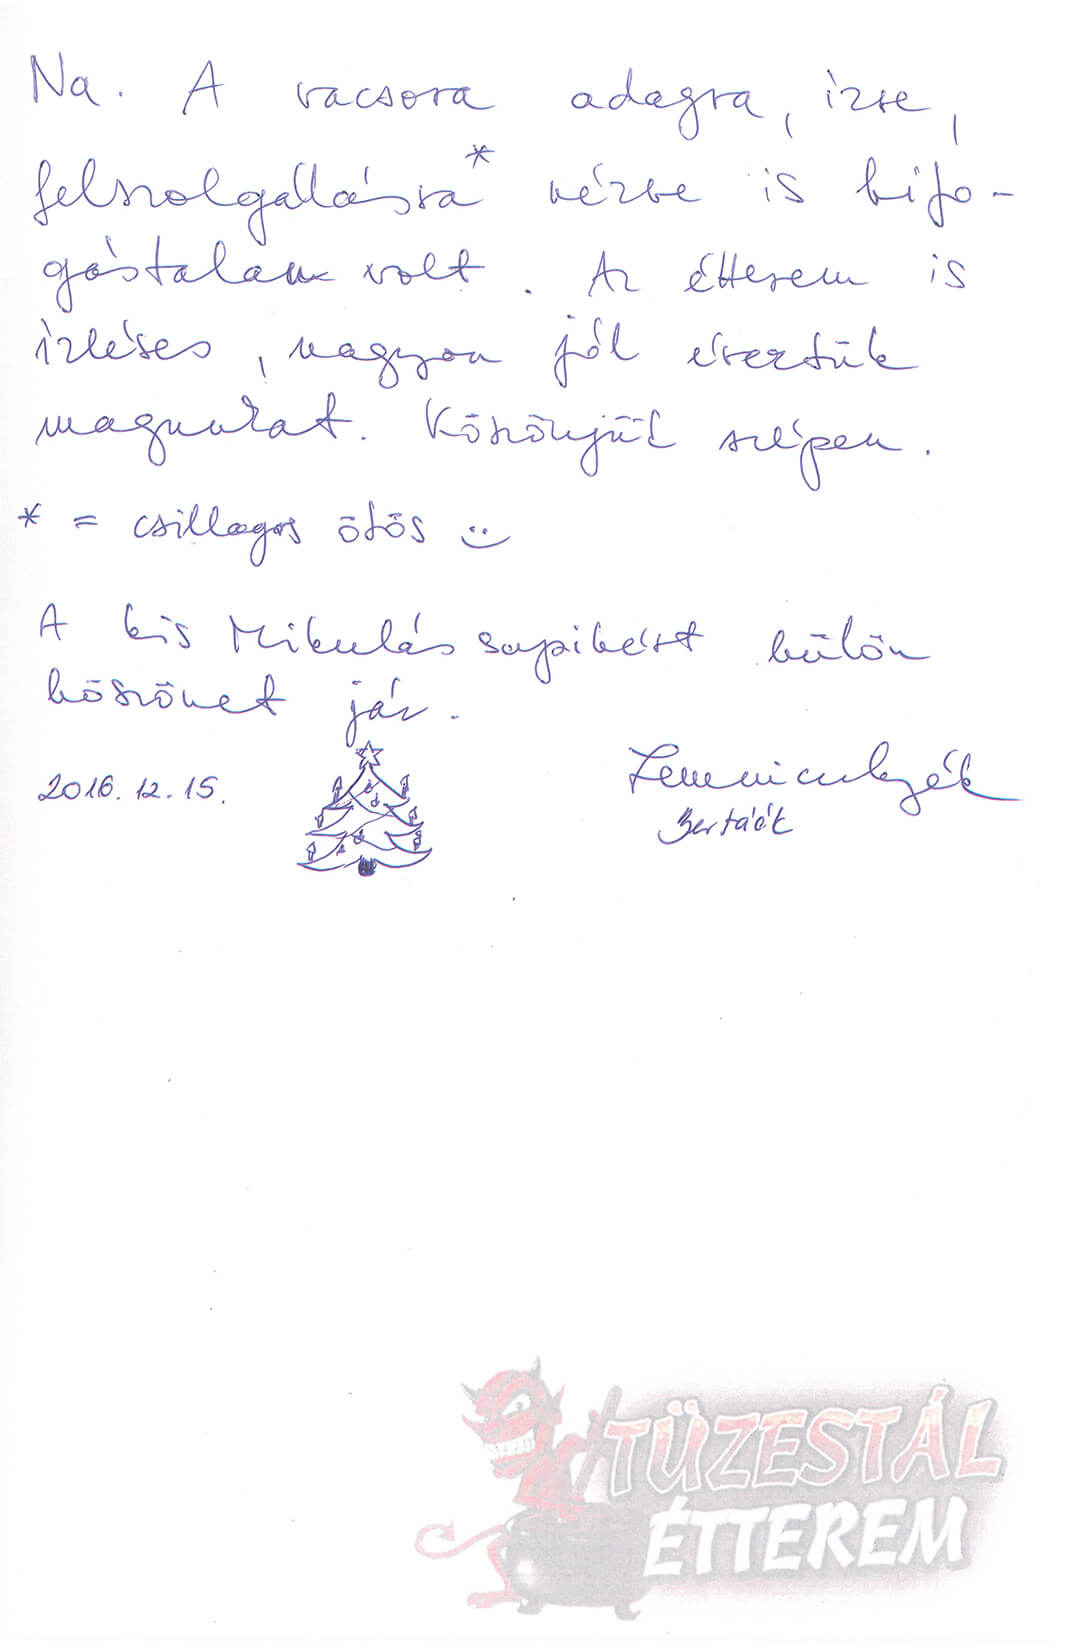 Na. A vacsora adagra, ízre,
felszolgálásra* nézve is kifo-
gástalan volt. Az étterem is
ízléses, nagyon jól éreztük
magunkat. Köszönjük szépen.
* = csillagos ötös :)
A kis Mikulás sapikért külön
köszönet jár.
2016. 12. 15.
Bertáék
TÜZESTÁL
ÉTTEREM